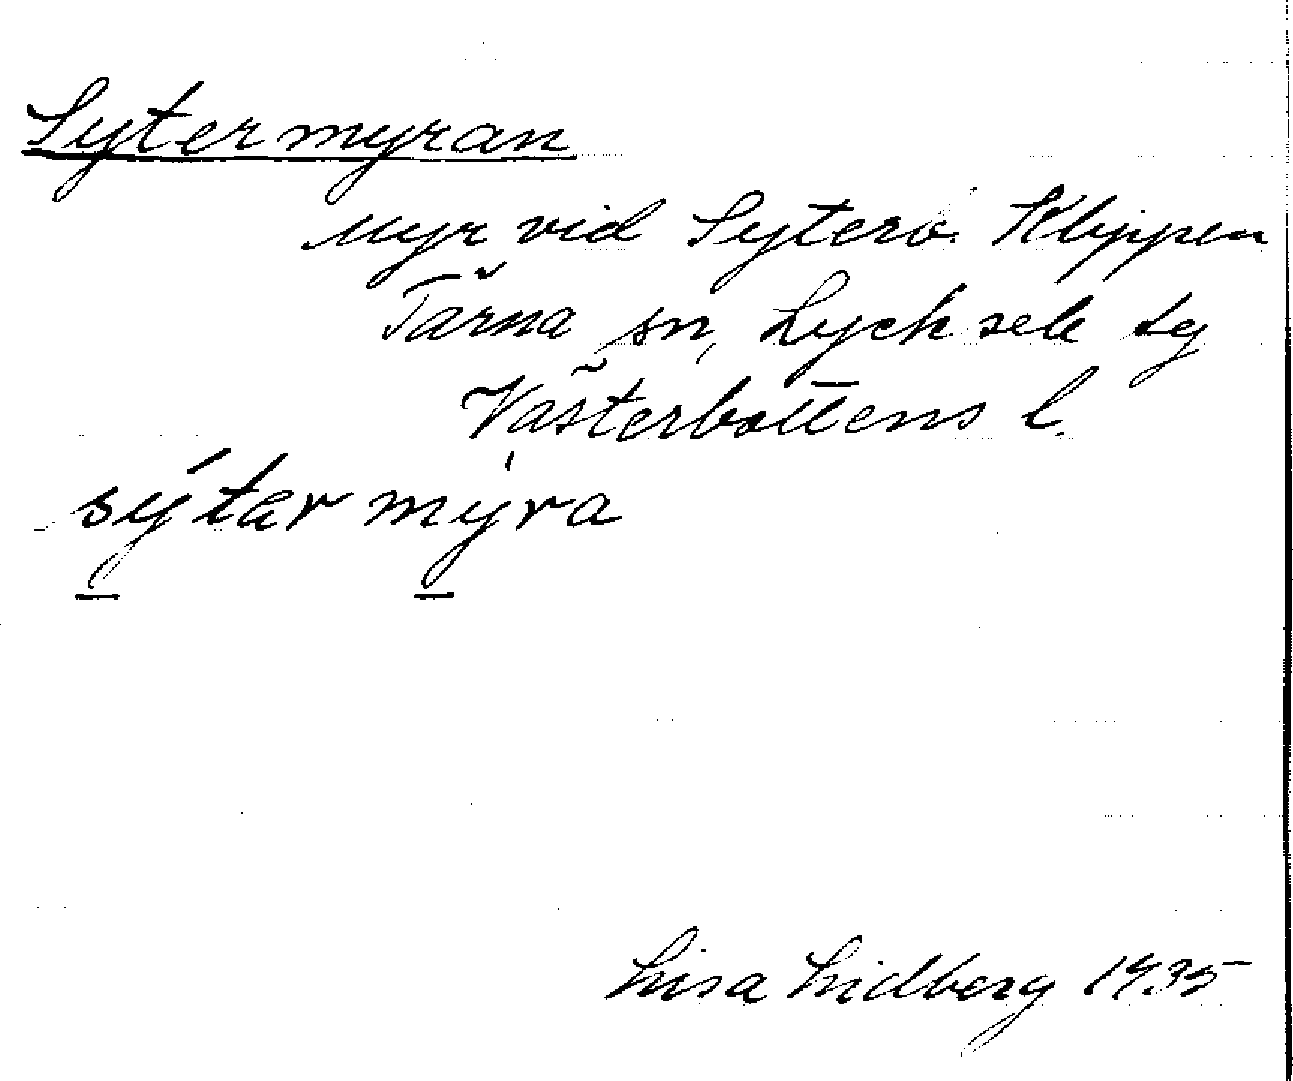 Sytermyran
Myr vid Syterö. Klippen
Tärna sn, Lycksele tg
Västerbottens l.
sýtar mýra
Lisa Lidberg 1935